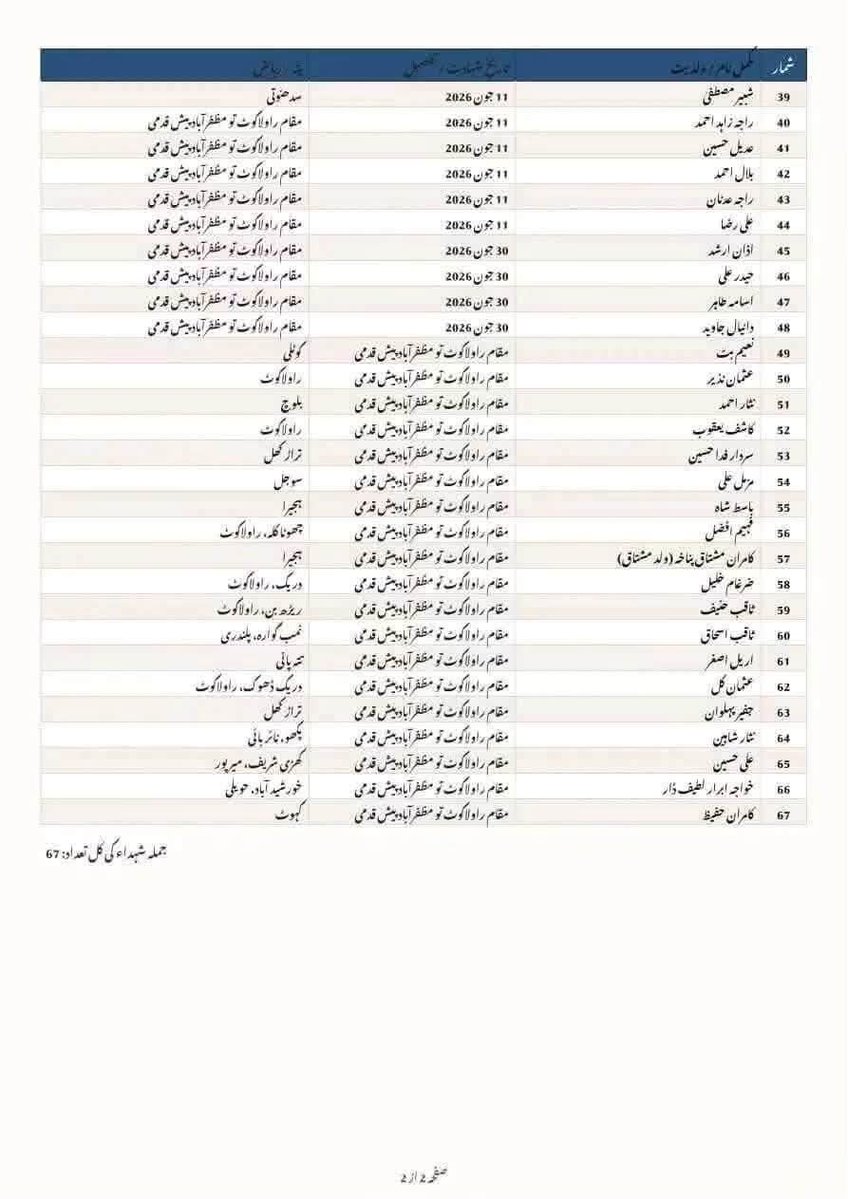 شمار مکمل نام / ولدیت تاریخ شہادت / تفصیل پتہ / رہائش
39 شبیر مصطفیٰ 11 جون 2026 سدھنوتی
40 راجہ زاہد احمد 11 جون 2026 مقام راولاکوٹ تو مظفرآباد پیش قدمی
41 عدیل حسین 11 جون 2026 مقام راولاکوٹ تو مظفرآباد پیش قدمی
42 بلال احمد 11 جون 2026 مقام راولاکوٹ تو مظفرآباد پیش قدمی
43 راجہ عدنان 11 جون 2026 مقام راولاکوٹ تو مظفرآباد پیش قدمی
44 علی رضا 11 جون 2026 مقام راولاکوٹ تو مظفرآباد پیش قدمی
45 اذان ارشد 30 جون 2026 مقام راولاکوٹ تو مظفرآباد پیش قدمی
46 حیدر علی 30 جون 2026 مقام راولاکوٹ تو مظفرآباد پیش قدمی
47 اسامہ طاہر 30 جون 2026 مقام راولاکوٹ تو مظفرآباد پیش قدمی
48 دانیال جاوید 30 جون 2026 مقام راولاکوٹ تو مظفرآباد پیش قدمی
49 نعیم بٹ مقام راولاکوٹ تو مظفرآباد پیش قدمی کوٹلی
50 عثمان نذیر مقام راولاکوٹ تو مظفرآباد پیش قدمی راولاکوٹ
51 نثار احمد مقام راولاکوٹ تو مظفرآباد پیش قدمی بلوچ
52 کاشف یعقوب مقام راولاکوٹ تو مظفرآباد پیش قدمی راولاکوٹ
53 سردار فدا حسین مقام راولاکوٹ تو مظفرآباد پیش قدمی تراڑکھل
54 مزمل علی مقام راولاکوٹ تو مظفرآباد پیش قدمی سوجل
55 باسط شاہ مقام راولاکوٹ تو مظفرآباد پیش قدمی ہجیرا
56 فہیم افضل مقام راولاکوٹ تو مظفرآباد پیش قدمی چھوٹا گلہ، راولاکوٹ
57 کامران مشتاق پناخہ (ولد مشتاق) مقام راولاکوٹ تو مظفرآباد پیش قدمی ہجیرا
58 ضرغام خلیل مقام راولاکوٹ تو مظفرآباد پیش قدمی دریک، راولاکوٹ
59 ثاقب حنیف مقام راولاکوٹ تو مظفرآباد پیش قدمی ریڑھ بن، راولاکوٹ
60 ثاقب اسحاق مقام راولاکوٹ تو مظفرآباد پیش قدمی نمب گوارہ، پلندری
61 اریل اصغر مقام راولاکوٹ تو مظفرآباد پیش قدمی تتہ پانی
62 عثمان گل مقام راولاکوٹ تو مظفرآباد پیش قدمی دریک ڈھوک، راولاکوٹ
63 جفیر پہلوان مقام راولاکوٹ تو مظفرآباد پیش قدمی تراڑکھل
64 نثار شاہین مقام راولاکوٹ تو مظفرآباد پیش قدمی
65 علی حسین مقام راولاکوٹ تو مظفرآباد پیش قدمی کھڑی شریف، میرپور
66 خواجہ ابرار لطیف ڈار مقام راولاکوٹ تو مظفرآباد پیش قدمی خورشید آباد، حویلی
67 کامران حفیظ مقام راولاکوٹ تو مظفرآباد پیش قدمی کہوٹہ
جملہ شہداء کی کل تعداد: 67
صفحہ 2 از 2